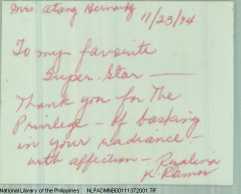 Mrs Atang Hernandz
11/23/94
To my favorite
Super Star —
Thank you for The
Privilege — of basking
in your radiance —
with affection — Rosalina
K Ramos
National Library of the Philippines NLPADMNB00111372001.TIF